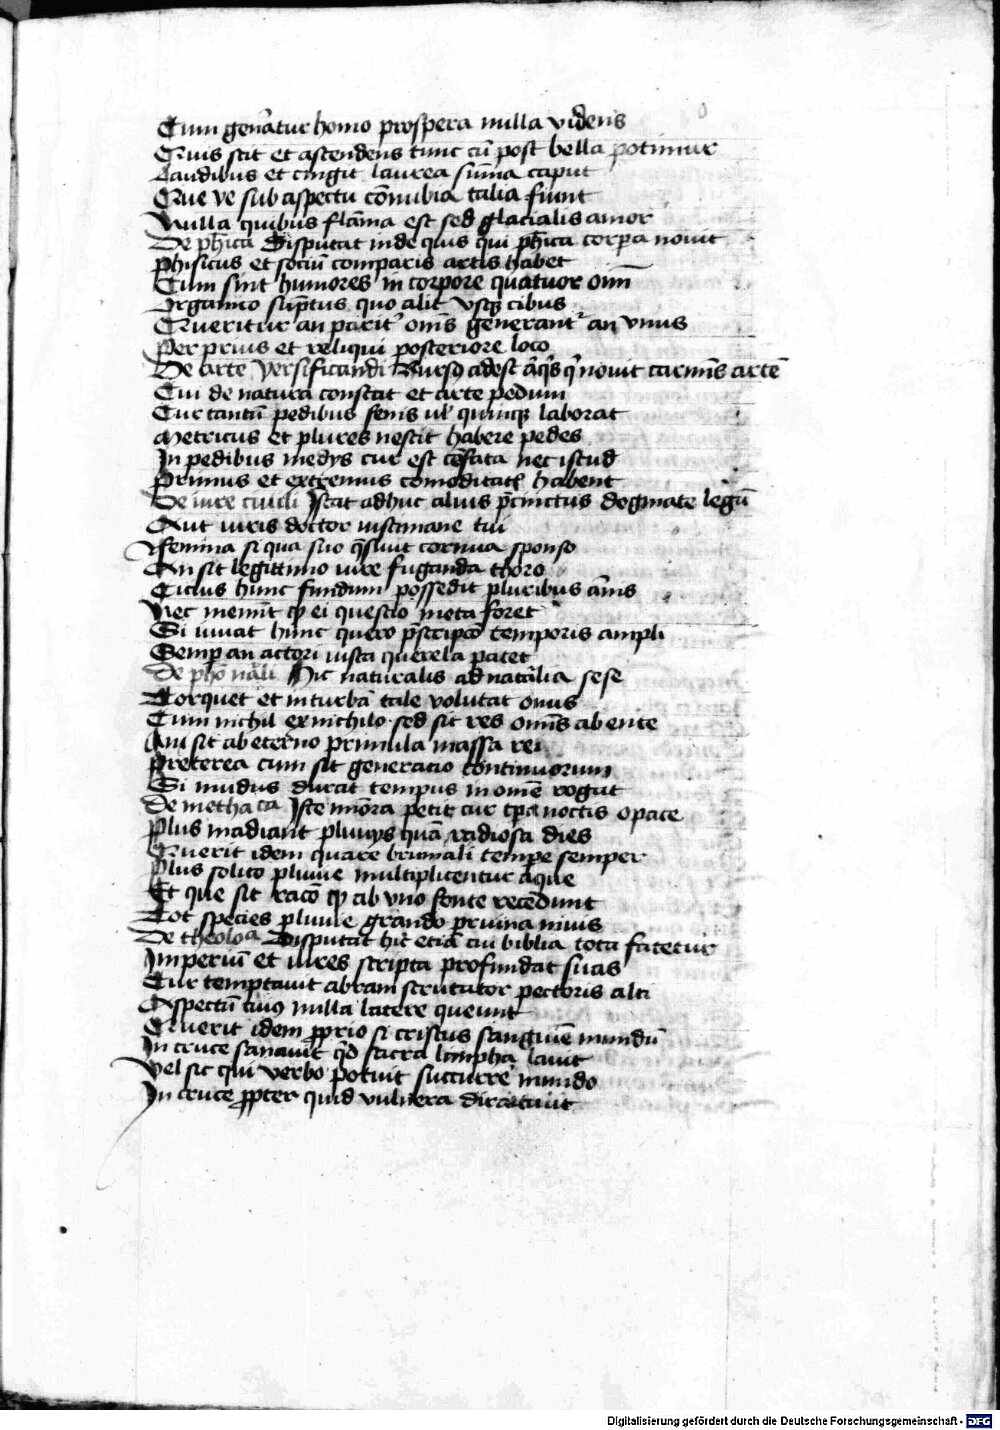 Cum gen̄atur homo prospera nulla videns
Quis scit et ascendens tunc cū post bella potimur
Laudibus et cingit laurea sūma caput
Que ve sub aspectu cōnubia talia fiunt
Nulla quibus flāma est sed glacialis amor
De ph̄ica Disputat inde quis qui ph̄ica corpa novit
Phisicus et sociū comparis artis habet
Cum sint humores in corpore quatuor om̄
Organico sup̄tus quo alit vsq cibus
Queritur an parit' om̄s generant' an vnus
Per prius et reliqui posteriore loco
De arte versificandi Rursq adest novit carmīs artē
Cui de natura constat et arte pedum
Cur tantū pedibus senis ul' quinq laborat
Metricus et plures nescit habere pedes
In pedibus medys cur est cēsata nec istud
Primus et extremus comoditatē habent
De iure ciuili Istat adhuc alius p̄cinctus dogmate legū
Aut iuris doctor iustiniane tui
Femina si qua suo q̄siuit cornua sponso
An sit legittimo iure fuganda thoro
Ciclus hunc fundum possedit pluribus ānis
Nec memīt qp ei questio mota foret
Si uiuat hunc quero p̄scripcō temporis ampli
Semp an actori iusta querela patet
De phō nāli Hic naturalis ad natālia sese
Torquet et in turbā tale volutat onus
Cum nichil ex nichilo sed sit res om̄is ab ente
An sit ab eterno primula massa rei
Preterea cum sit generacio continuorum
Si mūdus durat tempus in omē rogat
De metha ca Iste petit cur tpa noctis opace
Plus madiant pluuys quā radiosa dies
Querit idem quare brumali tempe semper
Plus solito pluuie multiplicentur aque
Et que sit racō qp ab vno fonte recedunt
Tot species pluuie grando pruina niuis
De theoloa Disputat hic eciā cui biblia tota fatetur
Imperiū et iures scripta profundat suas
Cur temptauit abram scrutator pectoris alti
Aspectū cuius nulla latere queunt
Querit idem pprio si cristus sanguīe mundū
In cruce sanauit qd sacra limpha lauit
Vel sic qui verbo potuit succurre mundo
In cruce ppter quid vulnera dira tulit